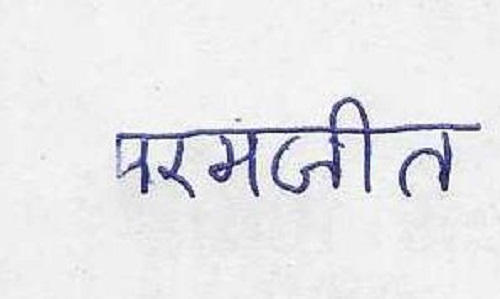 परमजीत